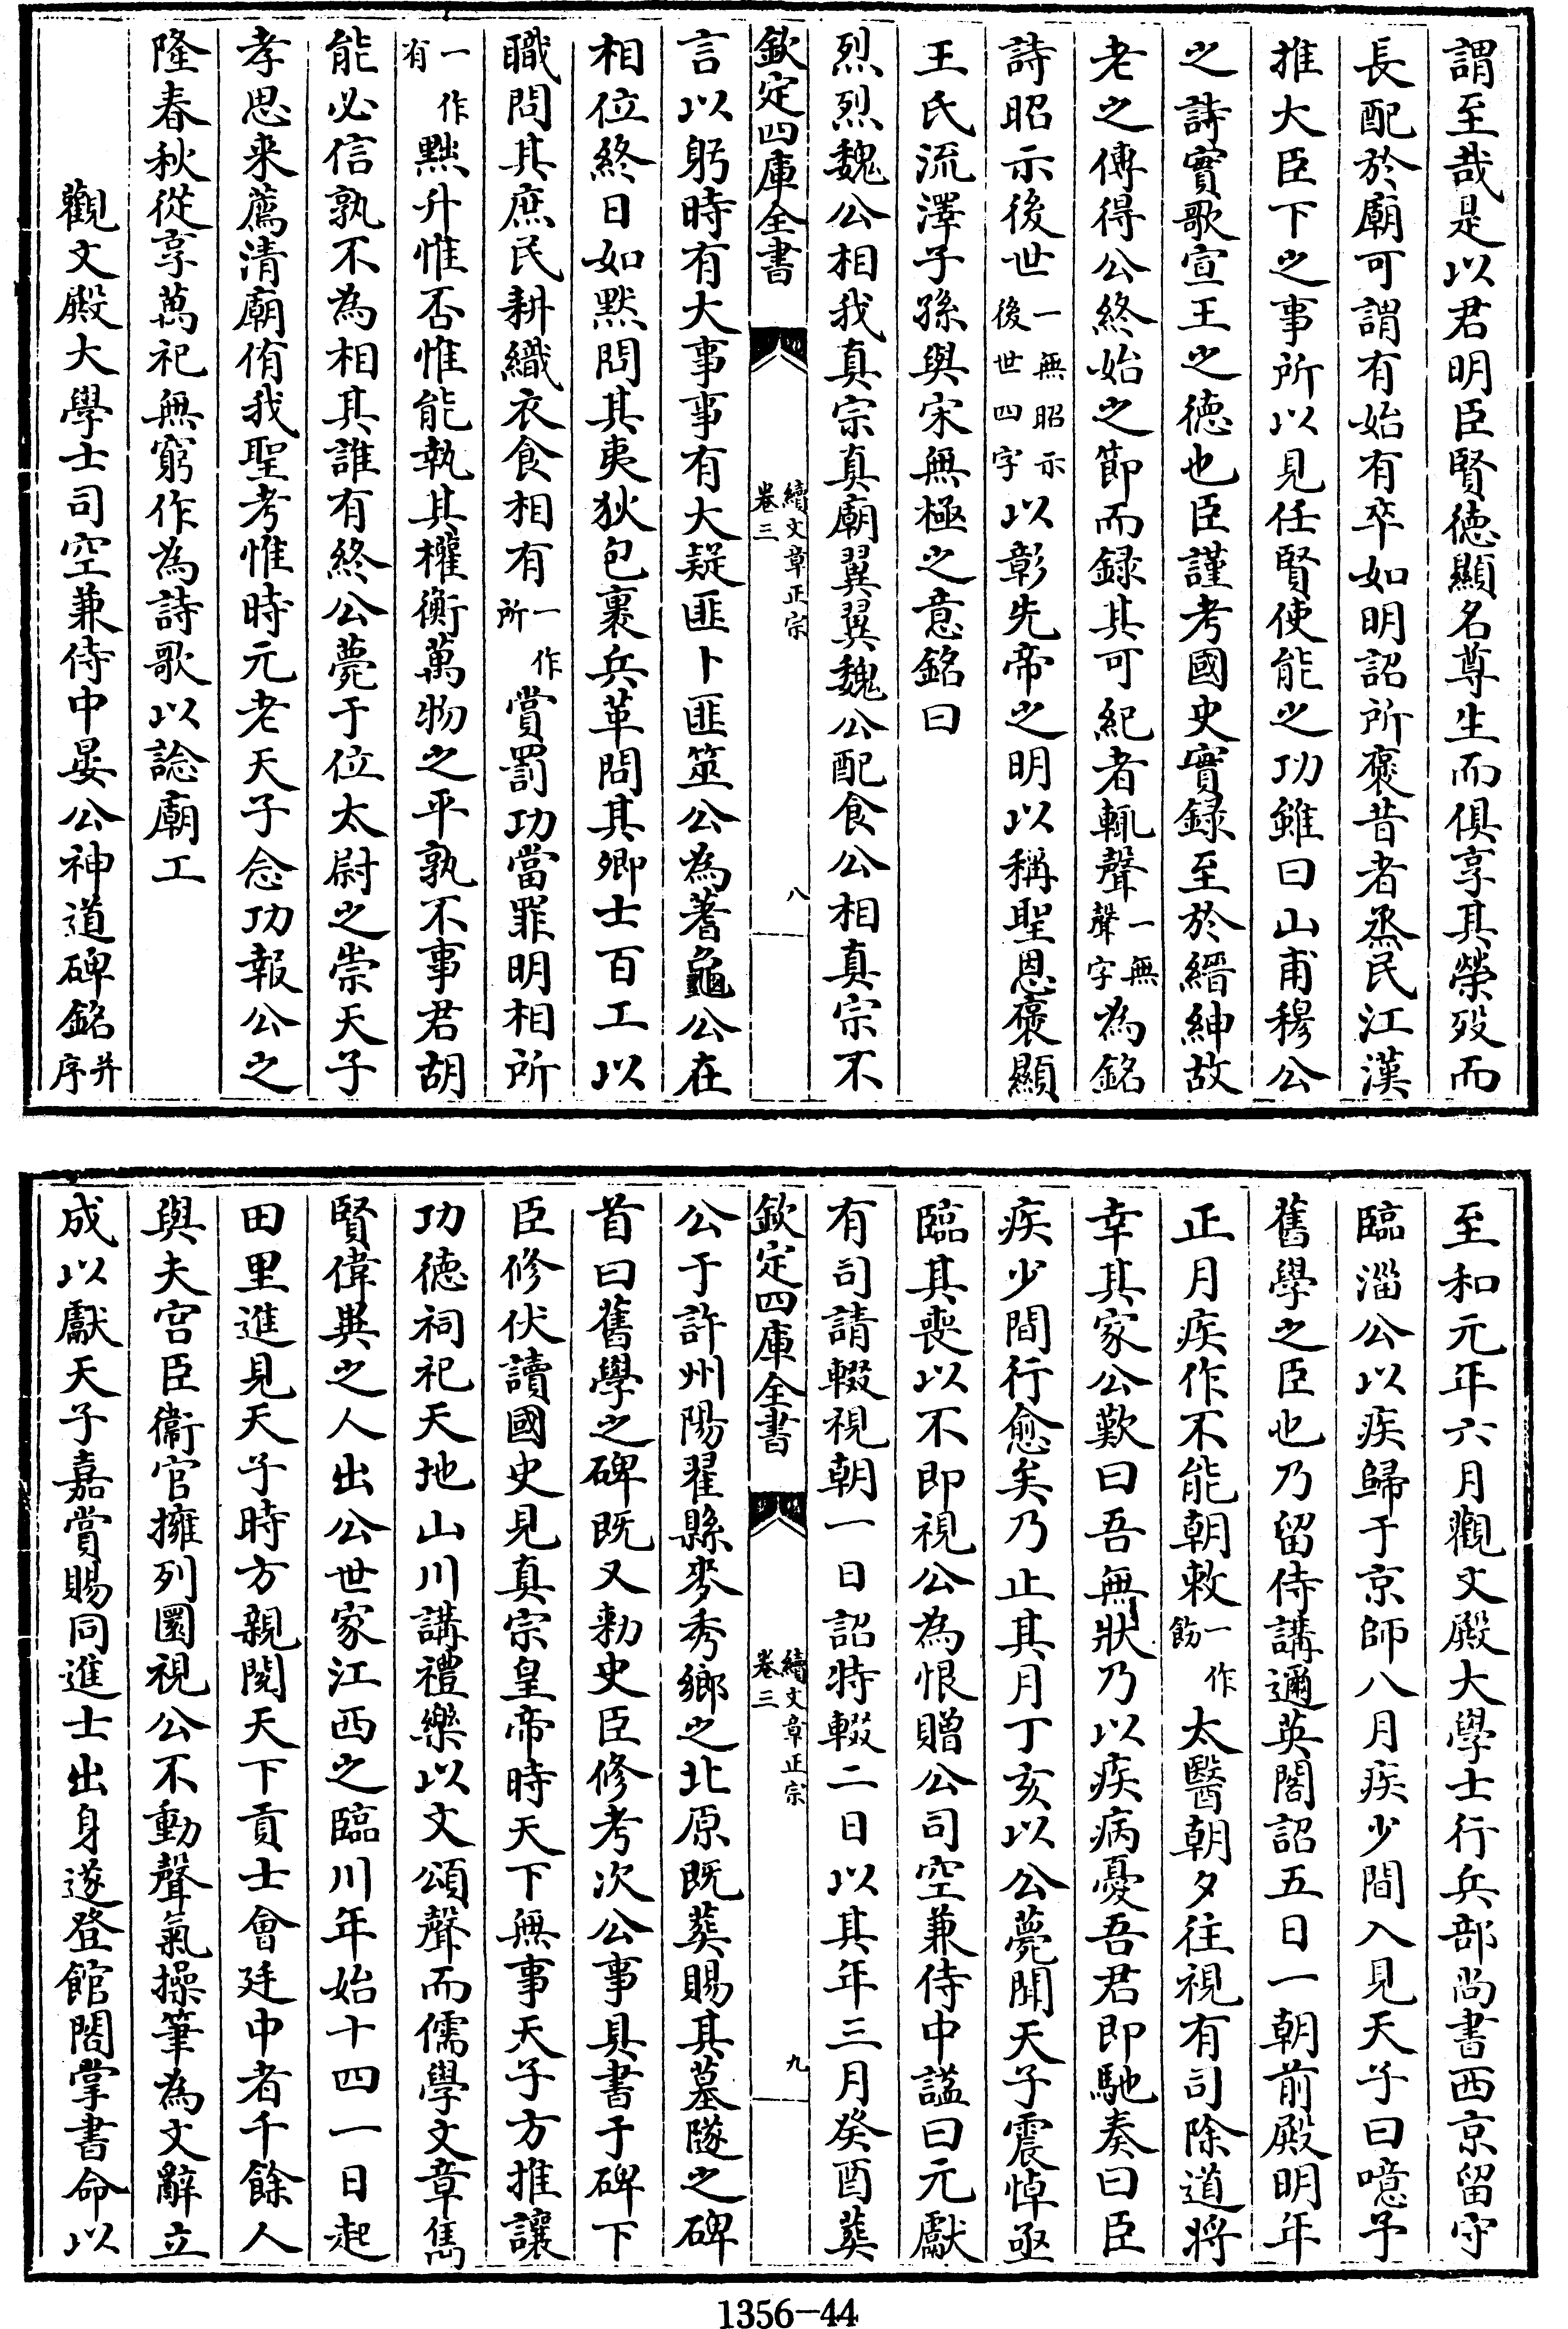 謂至哉是以君明臣賢德顯名尊生而俱享其榮殁而
長配於廟可謂有始有卒如明詔所褒昔者烝民江漢
推大臣下之事所以見任賢使能之功雖曰山甫穆公
之詩實歌宣王之德也臣謹考國史實録至於縉紳故
老之傳得公終始之節而録其可紀者輒聲一無聲字為銘
詩昭示後世一無昭示後世四字以彰先帝之明以稱聖恩褒顯
王氏流澤子孫與宋無極之意銘曰
烈烈魏公相我真宗真廟翼翼魏公配食公相真宗不
欽定四庫全書 續文章正宗 卷三 八
言以躬時有大事事有大疑匪卜匪筮公為蓍龜公在
相位終日如默問其夷狄包裹兵革問其卿士百工以
職問其庶民耕織衣食相有一作所賞罰功當罪明相所
一作有黜升惟否惟能執其權衡萬物之平孰不事君胡
能必信孰不為相其誰有終公薨于位太尉之崇天子
孝思来薦清廟侑我聖考惟時元老天子念功報公之
隆春秋從享萬祀無窮作為詩歌以諗廟工
觀文殿大學士司空兼侍中晏公神道碑銘并序
至和元年六月觀文殿大學士行兵部尚書西京留守
臨淄公以疾歸于京師八月疾少間入見天子曰噫予
舊學之臣也乃留侍講邇英閣詔五日一朝前殿明年
正月疾作不能朝敕一作飭太醫朝夕往視有司除道將
幸其家公歎曰吾無狀乃以疾病憂吾君即馳奏曰臣
疾少間行愈矣乃止其月丁亥以公薨聞天子震悼亟
臨其喪以不即視公為恨贈公司空兼侍中諡曰元獻
有司請輟視朝一日詔特輟二日以其年三月癸酉葬
欽定四庫全書 續文章正宗 卷三 九
公于許州陽翟縣麥秀鄉之北原既葬賜其墓隧之碑
首曰舊學之碑既又勅史臣修考次公事具書于碑下
臣修伏讀國史見真宗皇帝時天下無事天子方推讓
功德祠祀天地山川講禮樂以文頌聲而儒學文章雋
賢偉異之人出公世家江西之臨川年始十四一日起
田里進見天子時方親閲天下貢士會廷中者千餘人
與夫宫臣衞官擁列圜視公不動聲氣操筆為文辭立
成以獻天子嘉賞賜同進士出身遂登館閣掌書命以
1356-44